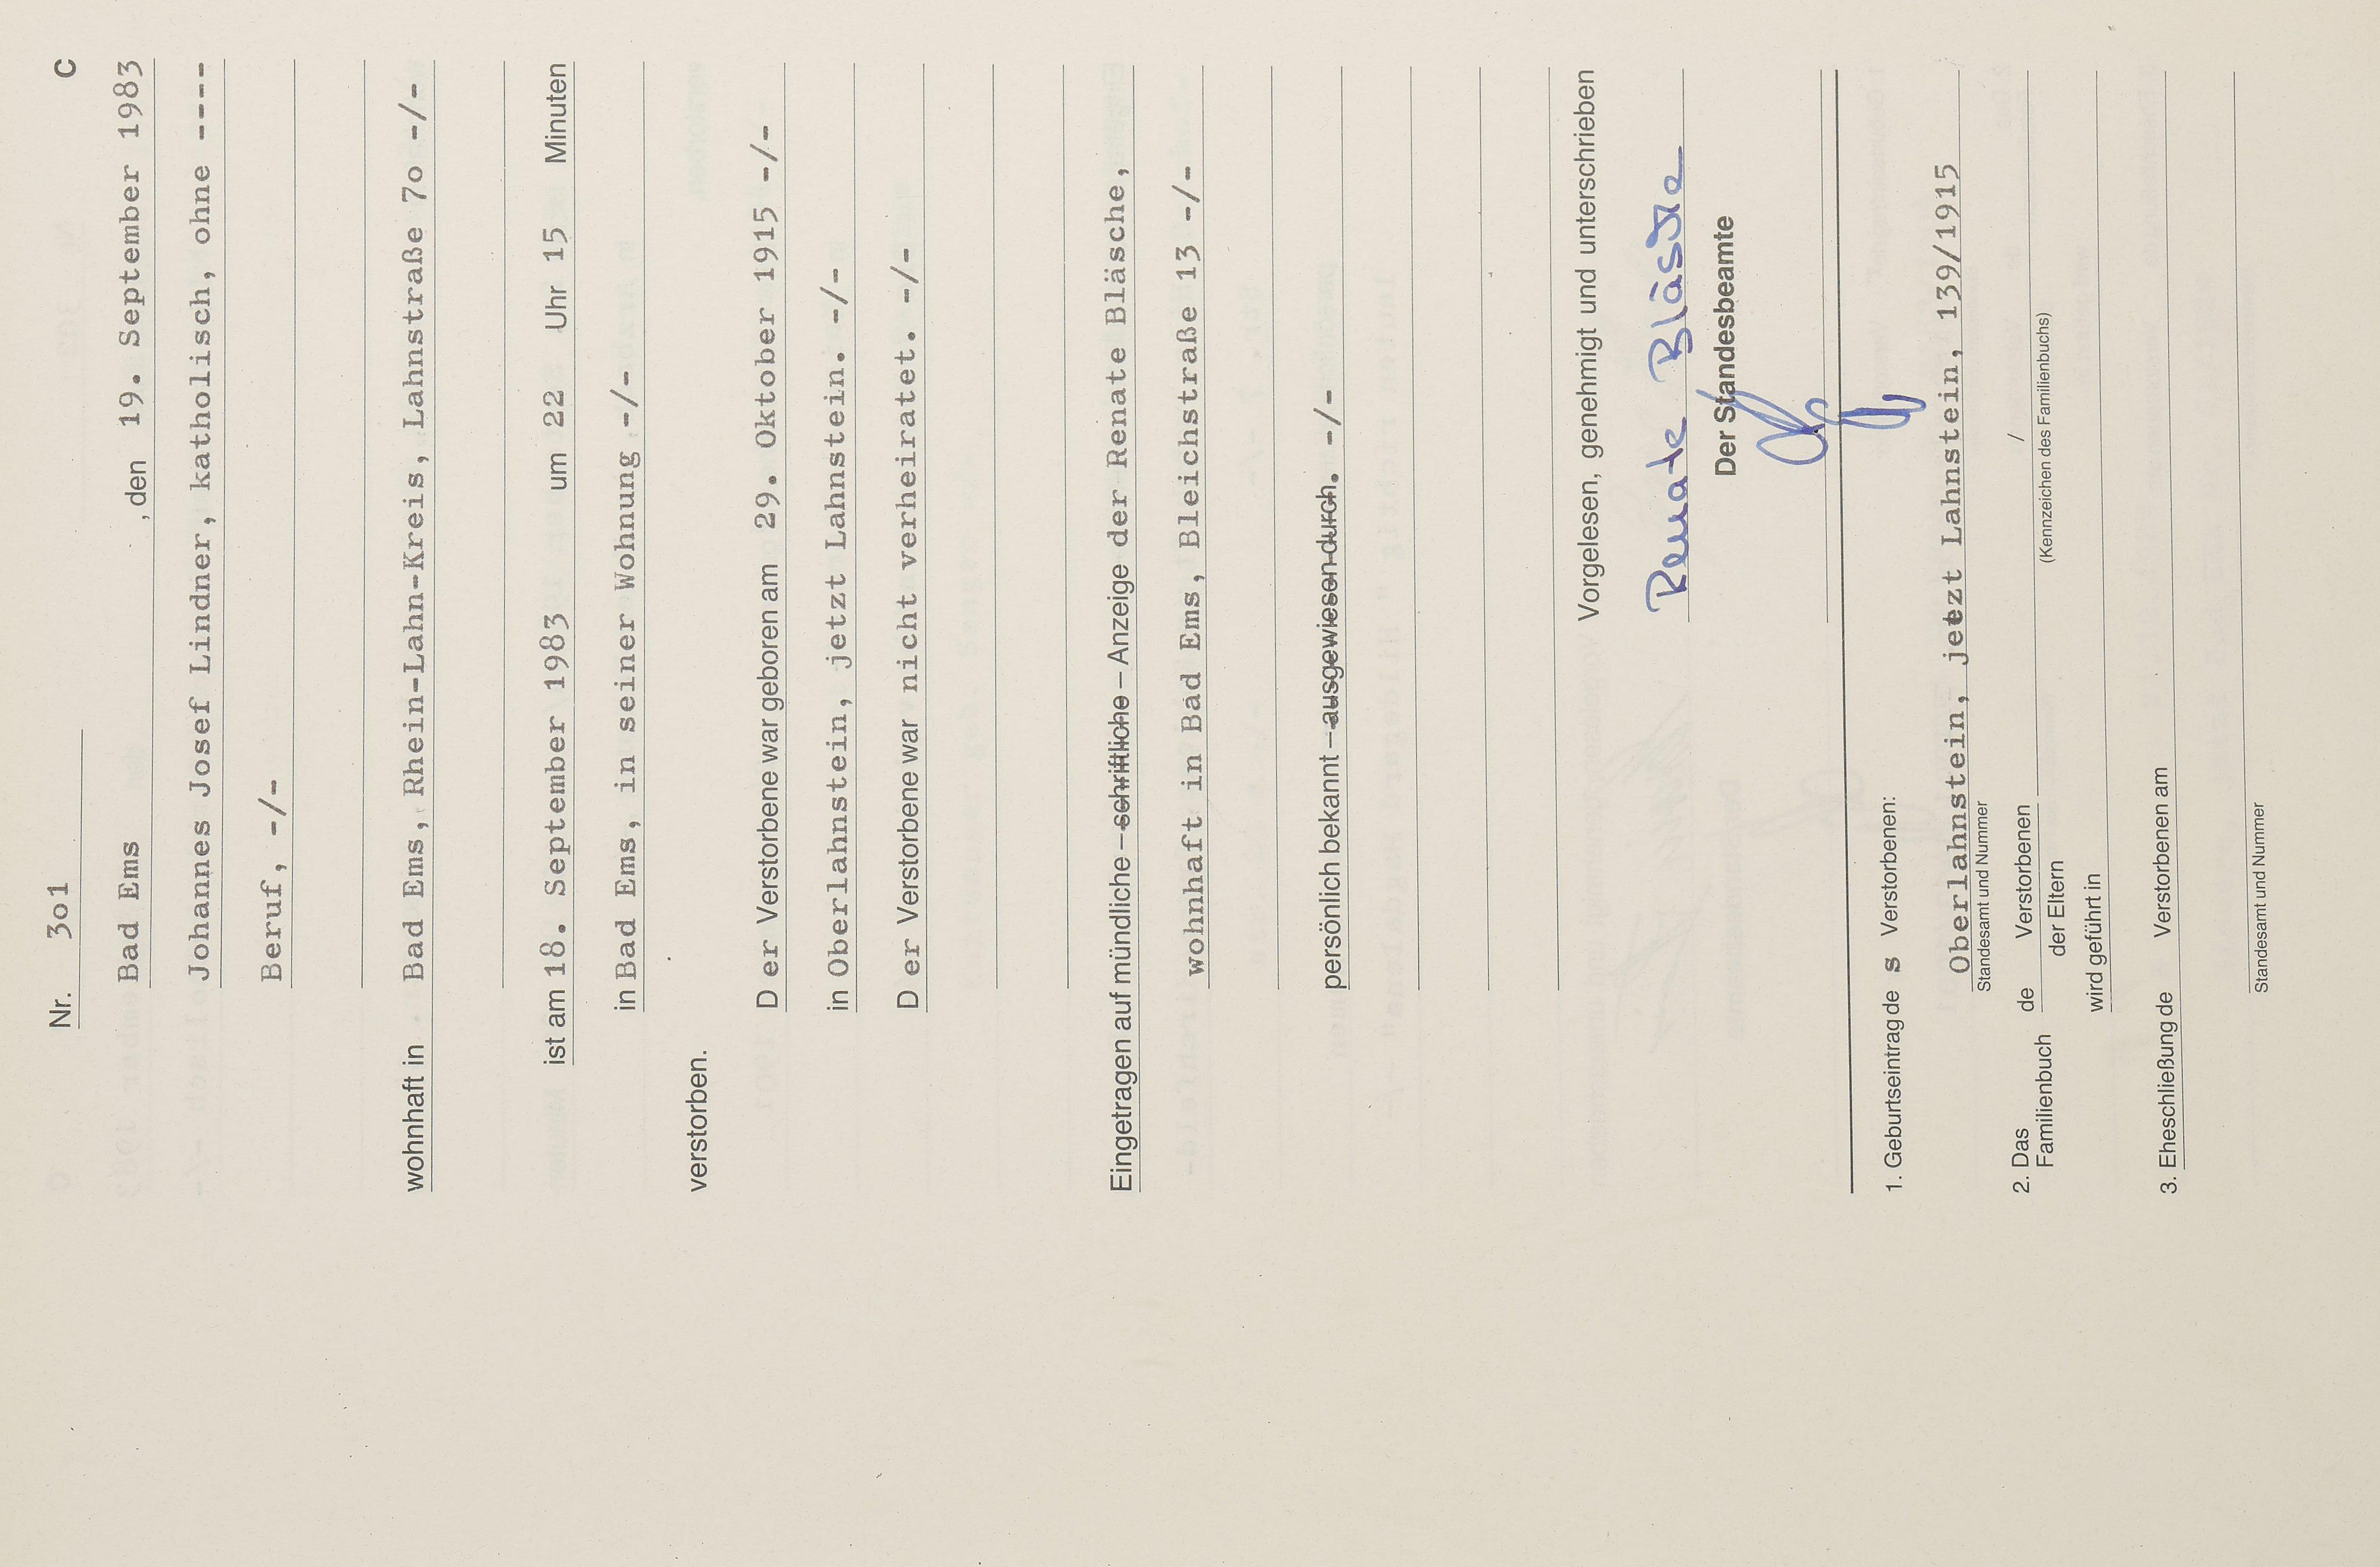 Nr. 3o1 C
Bad Ems , den 19. September 1983
Johannes Josef Lindner, katholisch, ohne ----
Beruf, -/-
wohnhaft in Bad Ems, Rhein-Lahn-Kreis, Lahnstraße 7o -/-
ist am 18. September 1983 um 22 Uhr 15 Minuten
in Bad Ems, in seiner Wohnung -/-
verstorben.
D er Verstorbene war geboren am 29. Oktober 1915 -/-
in Oberlahnstein, jetzt Lahnstein. -/-
D er Verstorbene war nicht verheiratet. -/-
Eingetragen auf mündliche – schriftliche – Anzeige der Renate Bläsche,
wohnhaft in Bad Ems, Bleichstraße 13 -/-
persönlich bekannt – ausgewiesen durch. -/-
Vorgelesen, genehmigt und unterschrieben
Renate Bläsche
Der Standesbeamte
1. Geburtseintrag de s Verstorbenen:
Oberlahnstein, jetzt Lahnstein, 139/1915
Standesamt und Nummer
2. Das Familienbuch de Verstorbenen der Eltern /
(Kennzeichen des Familienbuchs)
wird geführt in
3. Eheschließung de Verstorbenen am
Standesamt und Nummer